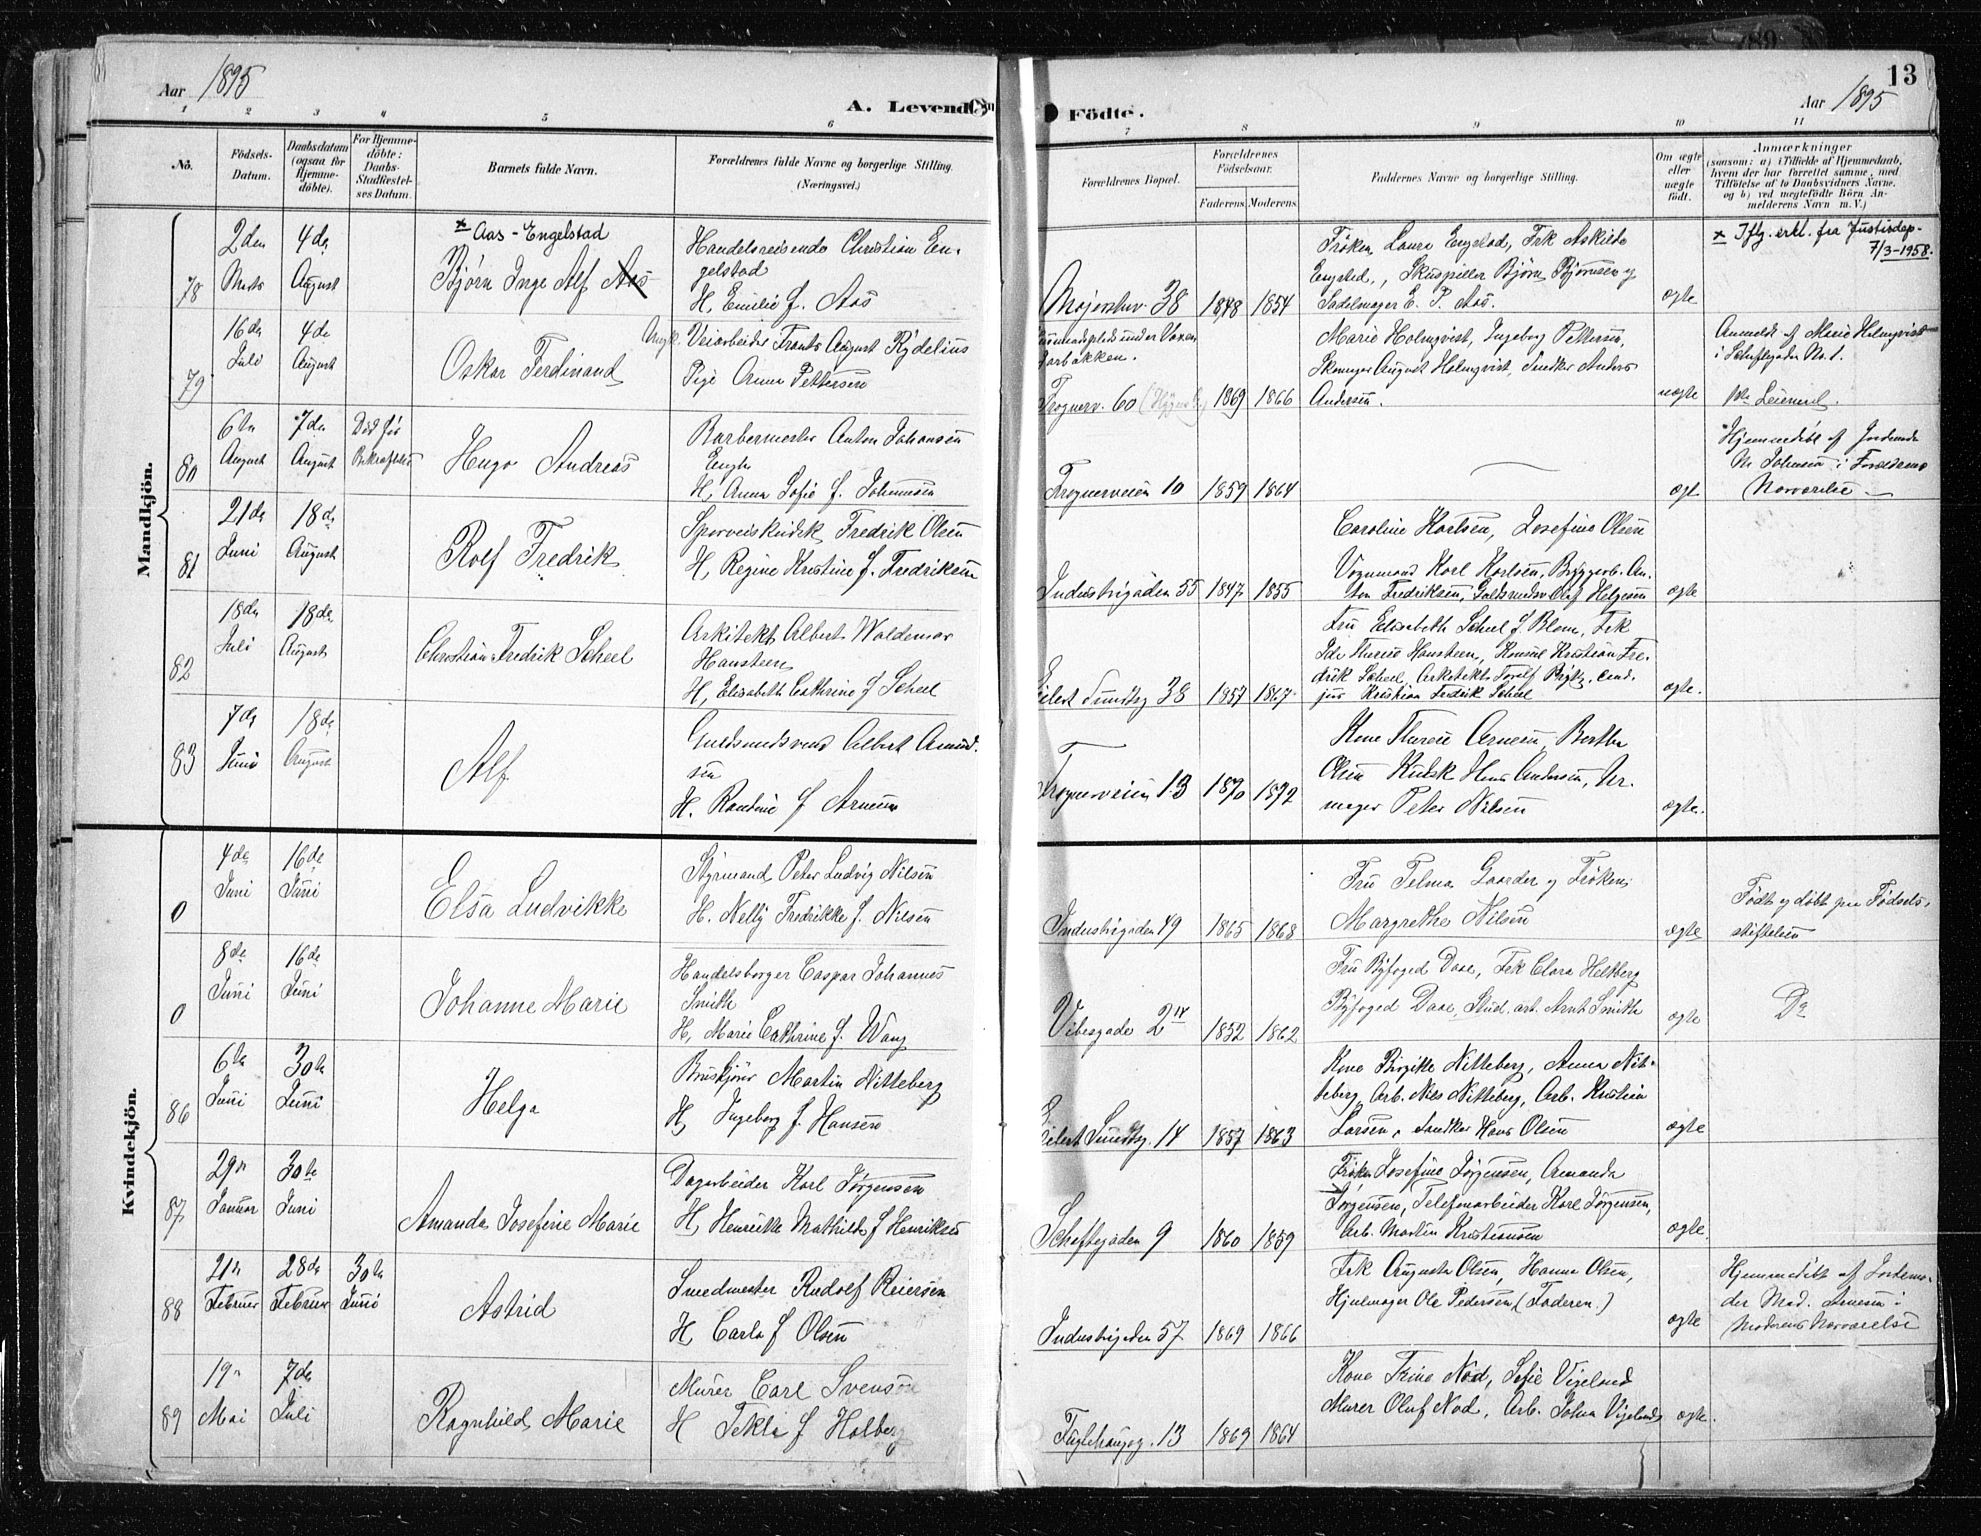 Aar 1895
A. Levende
Födte.
Aar 1895
13
1 2 3 4 5 6 7 8 9 10 11
No.
Födsels-
Datum.
Daabsdatum
(ogsaa for
Hjemme-
döbte).
For Hjemme-
döbte:
Daabs-
Stadfæstel-
ses Datum.
Barnets fulde Navn.
Forældrenes fulde Navne og borgerlige Stilling.
(Næringsvei.)
Forældrenes Bopæl.
Forældrenes
Födselsaar.
Faderens. Moderens.
Faddernes Navne og borgerlige Stilling.
Om ægte
eller
uægte
födt.
Anmærkninger
(saasom: a) i Tilfælde af Hjemmedaab,
hvem der har forrettet samme, med
Tilföielse af to Daabsvidners Navne,
og b) ved uægtefödte Börn An-
melderens Navn m. V.)
Mandkjön.
78
2den
Marts
4de
August
x Aas-Engelstad
Bjørn Inge Alf Aas
Handelsreisende Christian En-
gelstad
H. Emilie f. Aas
Majorstuv. 38
1848 1854
Frøken Laura Engelstad, Frk
Engelstad, Skuespiller Bjørn Bjørnson og
Sadelmager E. P. Aas.
ægte
x Iflg. erkl. fra Justisdep.
7/3-1958.
79
16de
Juli
4de
August
Oskar Ferdinand
Veiarbeider Frants August Rydelius
Pige Anna Pettersen
Frognerv. 60
1869 1866
Marie Holmqvist, Ingeborg Pettersen,
Skomager August Holmqvist, Snedker Anders
Andersen.
uægte
Anmeldt af Marie Holmqvist
i Schultzgaden No. 1.
80
6te
August
7de
August
Død før
Bekræftelse
Hugo Andreas
Barbermester Anton Johansen
Engh
H. Anna Sofie f. Johansen
Frognerveien 10
1859 1864
ægt
Hjemmedøbt af Jordemoder
M. Johnsen i Forældrenes
Nærværelse
81
21de
Juni
18de
August
Rolf Fredrik
Sporveiskudsk Fredrik Olsen
H. Regine Kristine f. Fredriksen
Industrigaden 55
1847 1855
Caroline Karlsen, Josefine Olsen
Vognmand Karl Karlsen, Bryggerb. An-
ton Fredriksen, Guldsmedsv. Olaf Helgesen
ægte
82
18de
Juli
18de
August
Christian Fredrik Scheel
Arkitekt Albert Waldemar
Hansteen
H. Elisabeth Cathrine f Scheel
Eilert Sundtsg 38
1857 1867
Fru Elisabeth Scheel f. Blom, Frk
Ida Therese Hansteen, Konsul Kristian Fre-
drik Scheel, Arkitekt Torolf Prytz, Cand.
jur Kristian Fredrik Scheel
ægte.
83
7de
Juni
18de
August
Alf
Guldsmedsvend Albert Amund-
sen
H. Randine f Arnesen
Frognerveien 13
1870 1872
Kone Therese Arnesen, Berthe
Olsen Kudsk Hans Andersen, Ur-
mager Peter Nilsen
ægte.
Kvindekjön.
0
4de
Juni
16de
Juni
Elsa Ludvikke
Styrmand Peter Ludvig Nilsen
H. Nelly Fredrikke f. Nilsen
Industrigaden 49
1865 1868
Fru Telma Gaarder og Frøken
Margrethe Nilsen
ægte
Født og døbt paa Fødsels-
stiftelsen
0
8de
Juni
16de
Juni
Johanne Marie
Handelsborger Caspar Johannes
Smith
H. Marie Cathrine f. Wang
Vibesgade 2
1852 1862
Fru Byfoged Daae, Frk Clara Heltberg
Byfoged Daae, Stud. art. Arnt Smith
ægte
Do
86
6te
Juni
30te
Juni
Helga
Buskjører Martin Nitteberg
H. Ingeborg f. Hansen
Eilert Sundtsg. 14
1857 1863
Kone Birgitte Nitteberg, Anna Nit-
teberg, Arb. Nils Nitteberg, Arb. Kristian
Larsen, Snedker Hans Olsen
ægte
87
29n
Januar
30te
Juni
Amanda Josefine Marie
Dagarbeider Karl Jørgensen
H. Henrikke Mathilde f Henriksen
Schaftegaden 9
1860 1859
Frøken Josefine Jørgensen, Amanda
Jørgensen, Telefonarbeider Karl Jørgensen,
Arb. Martin Kristiansen
ægte.
88
21n
Februar
28de
Februar
30te
Juni
Astrid
Smedmester Rudolf Reiersen
H Carla f Olsen
Industrigaden 57
1869 1866
Frk Augusta Olsen, Hanna Olsen,
Hjulmager Ole Pedersen (Faderen.)
ægte
Hjemmedøbt af Jordemo-
der Mad. Arnesen i
Moderens Nærværelse
89
19n
Mai
7de
Juli
Ragnhild Marie
Murer Carl Svenson
H Tekla f Holberg
Fuglehaugg. 13
1869 1864
Kone Trine Nød, Sofie Vigeland
Murer Oluf Nød, Arb. Johan Vigeland
ægte.